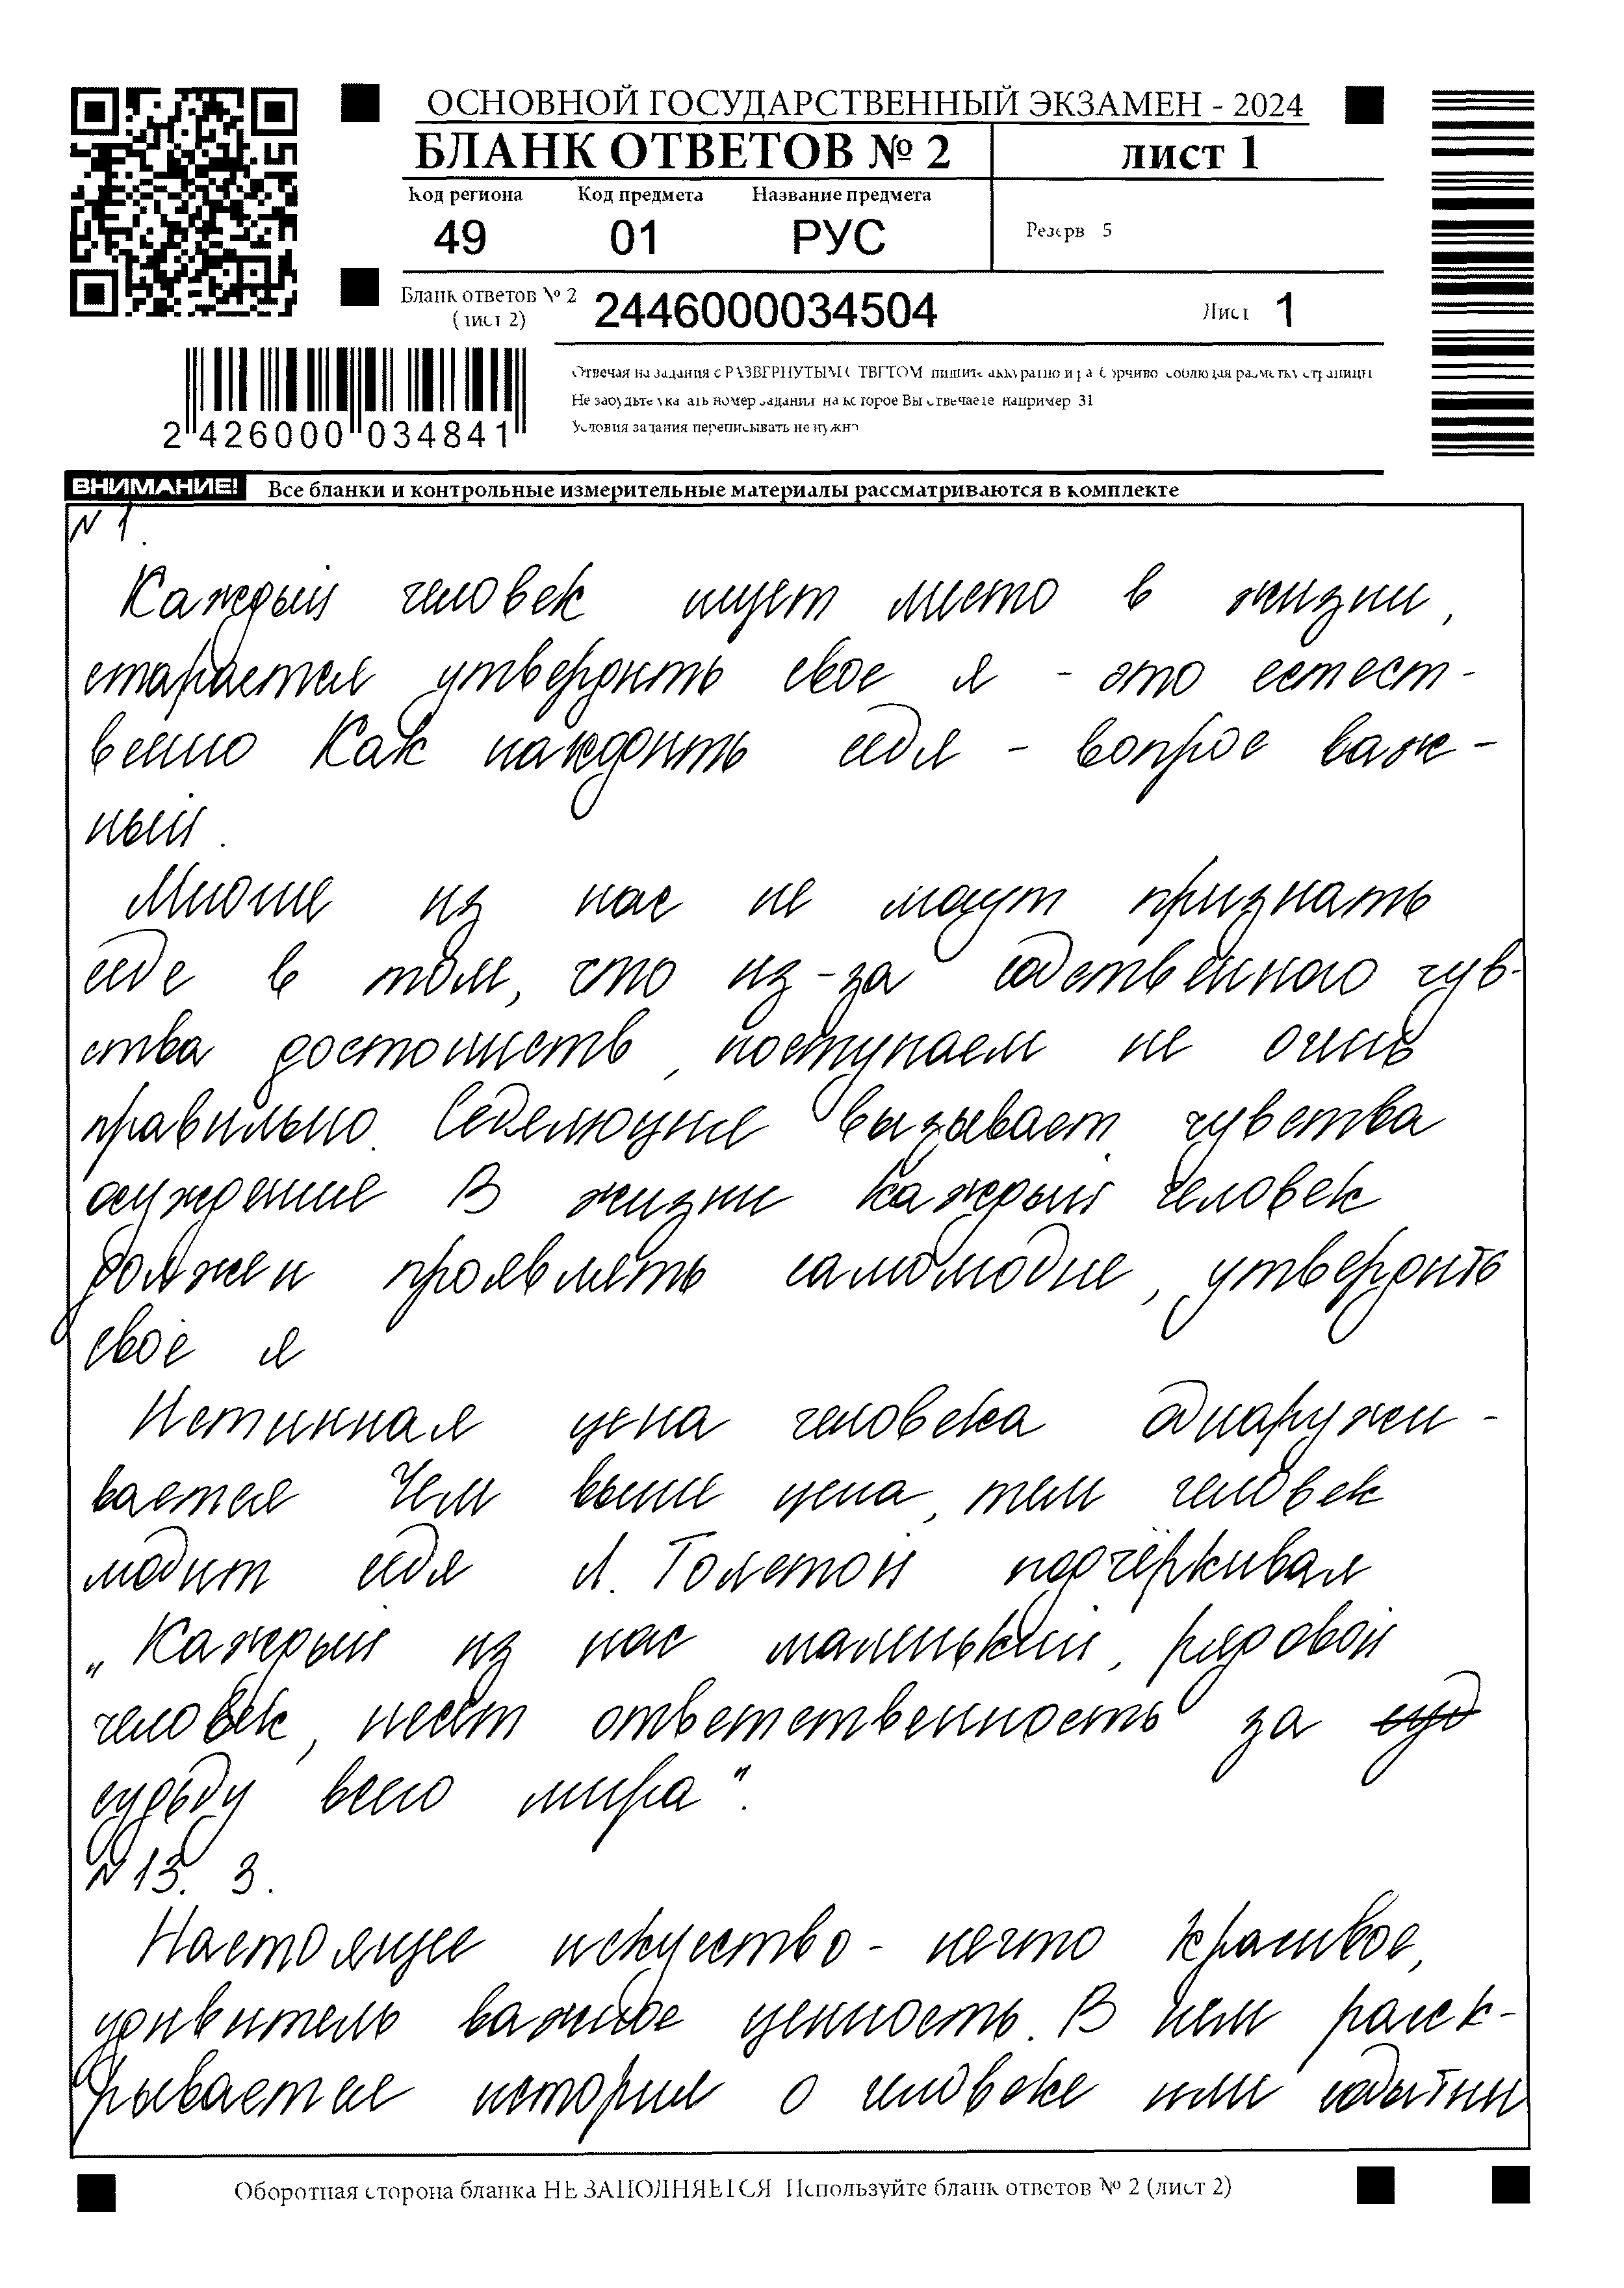 ОСНОВНОЙ ГОСУДАРСТВЕННЫЙ ЭКЗАМЕН - 2024
БЛАНК ОТВЕТОВ № 2
ЛИСТ 1
Код региона Код предмета Название предмета
49 01 РУС
Резерв 5
Бланк ответов № 2
(лист 2)
2446000034504
Лист 1
2 426000 034841
Отвечая на задания с РАЗВЕРНУТЫМ ОТВЕТОМ пишите аккуратно и разборчиво соблюдая разметку страницы
Не забудьте указать номер задания на которое Вы отвечаете например 31
Условия задания переписывать не нужно
ВНИМАНИЕ! Все бланки и контрольные измерительные материалы рассматриваются в комплекте
N 1.
Каждый человек ищет место в жизни,
старается утвердить свое я - это естест-
венно Как находить себя - вопрос важ-
ный.
Многие из нас не могут признать
себе в том, что из-за собственного чув-
ства достоинств, поступаем не очень
правильно. Себялюцие вызывает чувства
осуждение В жизни каждый человек
должен проявлять самолюбие, утвердить
своё я
Истинная цена человека обнаружи-
вается Чем выше цена, тем человек
любит себя Л. Толстой подчёркивал
„Каждый из нас маленький, рядовой
человек, несёт ответственность за суд
судьбу всего мира".
N 13. 3.
Настоящее искусство - нечто красивое,
удивитель важное ценность. В нем раск-
рывается история о человеке или событии
Оборотная сторона бланка НЕ ЗАПОЛНЯЕТСЯ Используйте бланк ответов № 2 (лист 2)